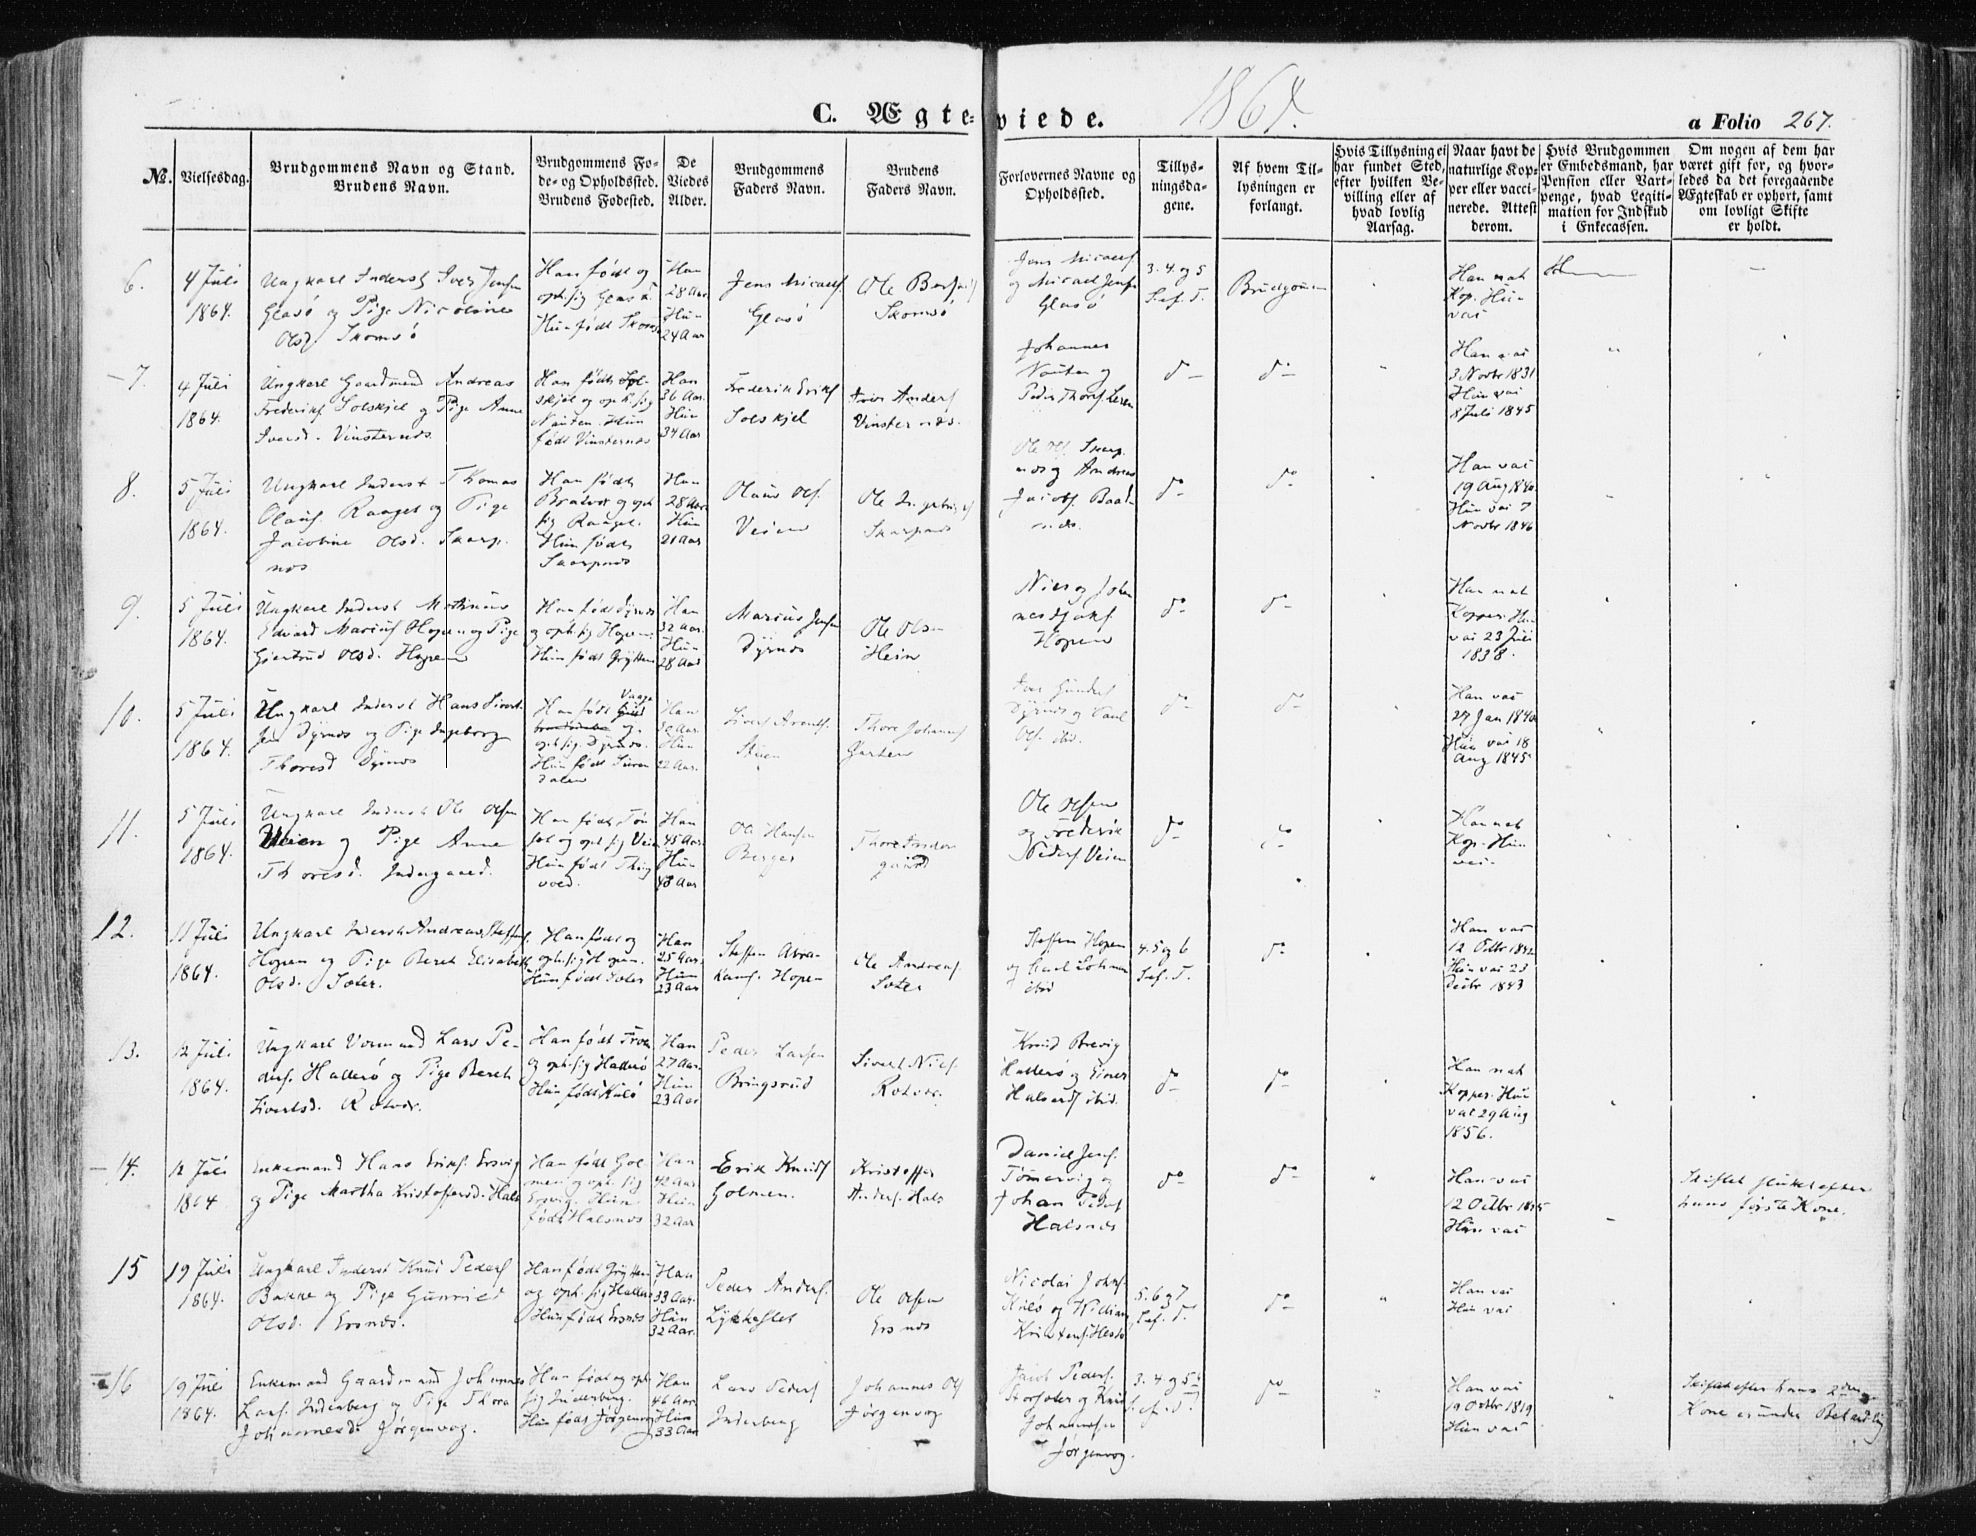 C. Ægteviede. 1864. a Folio 267.
No. Vielsesdag. Brudgommens Navn og Stand. Brudens Navn. Brudgommens Fode- og Opholdssted. Brudens Fødested. De Viedes Alder. Brudgommens Faders Navn. Brudens Faders Navn. Forlovernes Navne og Opholdssted. Tillysningsdagene. Af hvem Tillysningen er forlangt. Hvis Tillysning ei har fundet Sted, efter hvilken Bevilling eller af hvad lovlig Aarsag. Naar havt de naturlige Kopper eller vaccinerede. Attest derom. Hvis Brudgommen er Embedsmand, har Pension eller Vartpenge, hvad Legitimation for Indskud i Enkecassen. Om nogen af dem har været gift for, og hvorledes da det foregaaende Ægteskab er ophørt, samt om lovligt Skifte er holdt.
6. 4 Juli 1864.
Ungkarl Inderst Iver Jensen
Glasø og Pige Nicoline
Olsd. Skomsø
Han født og
opt. sig Glasø.
Hun født Skomsø
Han 28 Aar. Hun 24 Aar
Jens Micaels. Glasø
Ole Skomsø
Jens Micaels.
og Micael Jens.
Glasø
3. 4. og 5 S. e. f. T.
Brudgommen
Han nat. Kop. Hun vac
7. 4 Juli 1864.
Ungkarl Gaardmand Andreas
Frederiks. Solskjel og Pige Anne
Iversd. Vinsternes.
Han født Solskjel og opt. sig
Nauten. Hun
født Vinsternes
Han 36 Aar. Hun 34 Aar
Frederik Eriks. Solskjel
Iver Anders. Vinsternes.
Johannes
Nauten og
Peder Thors. Leren
do do
Han vac 3 Novbr 1831
Hun vac 8 Juli 1845
8. 5 Juli 1864.
Ungkarl Inderst Thomas
Olaus. Raaget og Pige
Jacobine Olsd. Skarpnes
Han født
og opt.
sig Raaget.
Hun født
Skarpnes
Han 28 Aar. Hun 21 Aar
Olaus Ols. Veien
Ole Ingebrigts. Skarpnes
Ole Ols. Skarpnes og Andreas
Jacobs.
do do
Han vac 19 Aug 1840.
Hun vac 7 Novbr 1846
9. 5 Juli 1864.
Ungkarl Inderst
Edvard Marius. Hopen og Pige
Gjertrud Olsd. Hopen
Han født Dyrnes
og opt. sig Hopen.
Hun født Grytten
Han 32 Aar. Hun 28 Aar
Marius Jensen Dyrnes
Ole Olsen Hein
Niels og Johannes
Hopen
do do
Han nat. Kopper. Hun vac 23 Juli 1838.
10. 5 Juli 1864.
Ungkarl Inderst Hans Sivertsen Dyrnes og Pige Ingeborg
Thoresd Dyrnes
Han født
og
opt. sig Dyrnes.
Hun født Surendalen
Han 30 Aar. Hun 22 Aar.
Sivert Arnts.
Thore Johans.
Iver
Dyrnes og Paul
Ols. ibid.
do do
Han vac 27 Jan 1840
Hun vac 18 Aug 1845
11. 5 Juli 1864.
Ungkarl Inderst Ole Olsen
Veien og Pige Anne
Thoresd. Indergaard.
Han født
og opt. sig Veien
Hun født Thingvoed.
Han 45 Aar. Hun 48 Aar
Ole Hansen Berger
Thore Indergaard
Ole Olsen
og Frederik
Peders. Veien
do do
Han nat. Kop. Hun vac.
12. 11 Juli 1864.
Ungkarl Inderst Andreas Steffens.
Hopen og Pige Beret Elisabeth
Olsd. Soter.
Han født og
opt. sig Hopen.
Hun født Soter
Han 25 Aar. Hun 23 Aar
Steffen Abrahams. Hopen
Ole Andreas. Soter
Steffen Hopen
og Carl
ibid
4. 5 og 6 S. e. f. T.
do
Han vac 12 Octbr 1842
Hun vac 23 Decbr 1843
13. 12 Juli 1864.
Ungkarl Lars Peders. Hallerø og Pige Beret
Sivertsd. Rotvær.
Han født
og opt. sig Hallerø
Hun født Kulø
Han 27 Aar. Hun 23 Aar
Peder Larsen Bringsrud
Sivert Niels. Rotvær.
Knud Brevig
Hallerø og Einer
Halvors. ibid.
do do
Han nat. Kopper. Hun vac 29 Aug 1856.
14. 12 Juli 1864
Enkemand Hans Eriks. Ersvig
og Pige Martha Kristoffersd. Hals
Han født Golmen og opt. sig
Ersvig. Hun
født Halsnes
Han 42 Aar. Hun 32 Aar
Erik Knuds. Golmen.
Kristoffer Anders. Hals
Daniel Jens.
Tømmervig og
Johan Peders.
Halsnes
do do
Han vac 12 Octbr
Hun vac
Skiftet sluttet efter
hans første Kone.
15 19 Juli 1864.
Ungkarl Inderst Knud Peders.
Bakke og Pige Gunhild
Olsd. Ersnes.
Han født Grytten
og opt. sig Hallerø
Hun født Ersnes
Han 33 Aar. Hun 32 Aar.
Peder Anders. Lykkeslet
Ole Olsen Ersnes
Nicolai Johns.
Kulø og Kilian
Kristens. Hestø
5. 6 og 7 S. e. f. T.
do
Han vac Hun vac
16 19 Juli 1864.
Enkemand Gaardmand Johannes
Lars. Inderberg og Pige Thora
Johannesd. Jørgenvog.
Han født og opt.
sig Inderberg.
Hun født Jørgenvog
Han 46 Aar. Hun 33 Aar
Lars Peders. Inderberg
Johannes Ols. Jørgenvog
Jacob Peders.
Storsoter og Knud
Johannesen
Jørgenvog.
3. 4 og 5
do
Han vac 19 Octbr 1819
Hun vac
Skiftet efter hans 2den
Kone er under Behandling